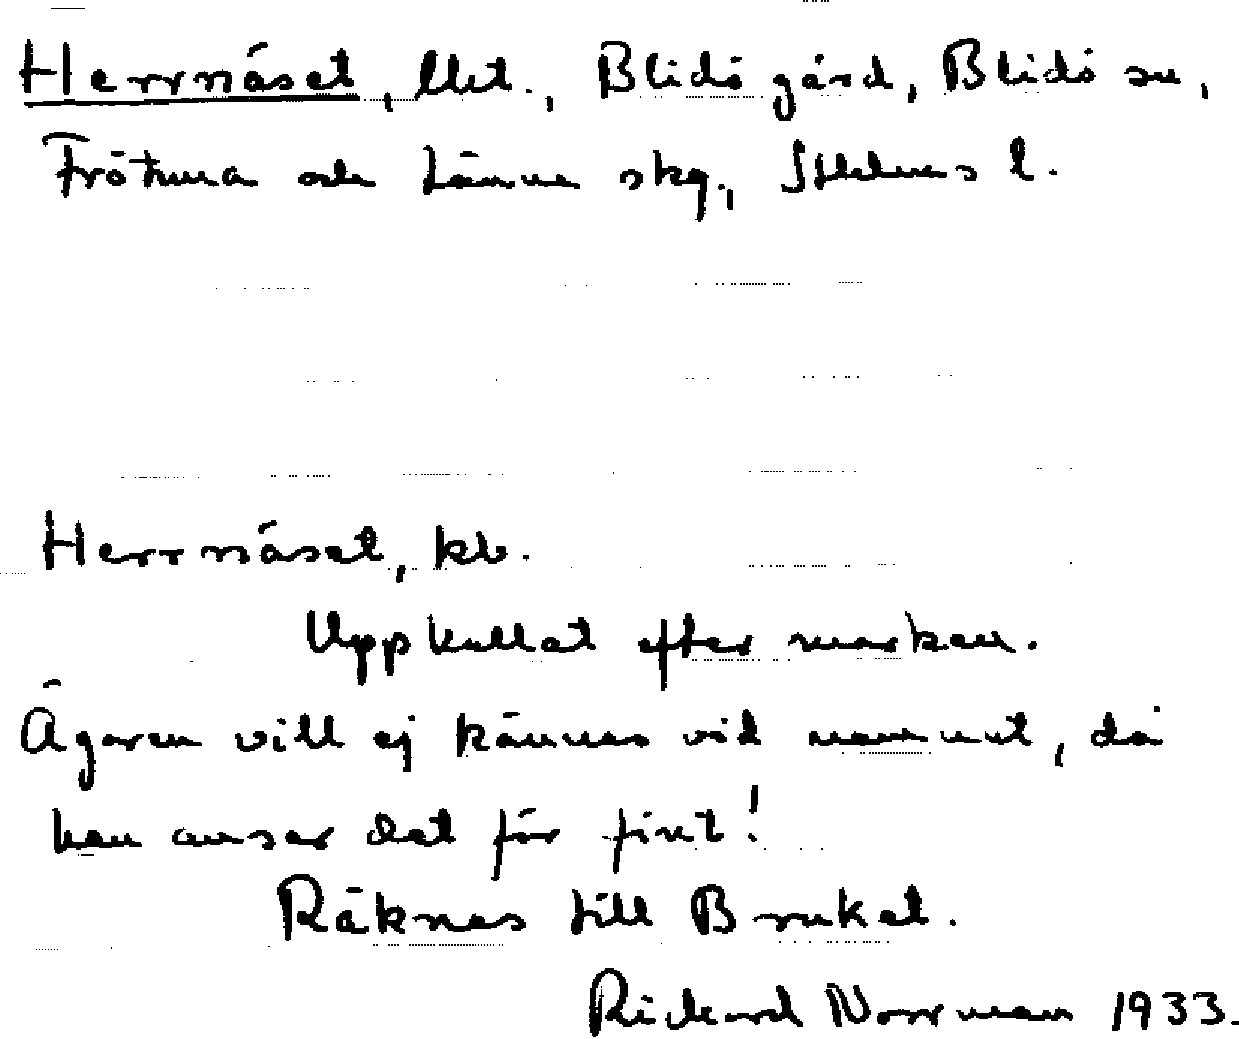 Herrnäset, lht., Blidö gård, Blidö sn,
Frötuna och Länna skg., Sthlms l.
Herrnäset, kb.
Uppkallat efter marken.
Ägaren vill ej kännas vid namnet, då
han anser det för fint!
Räknas till Bruket.
Rickard Norrman 1933.